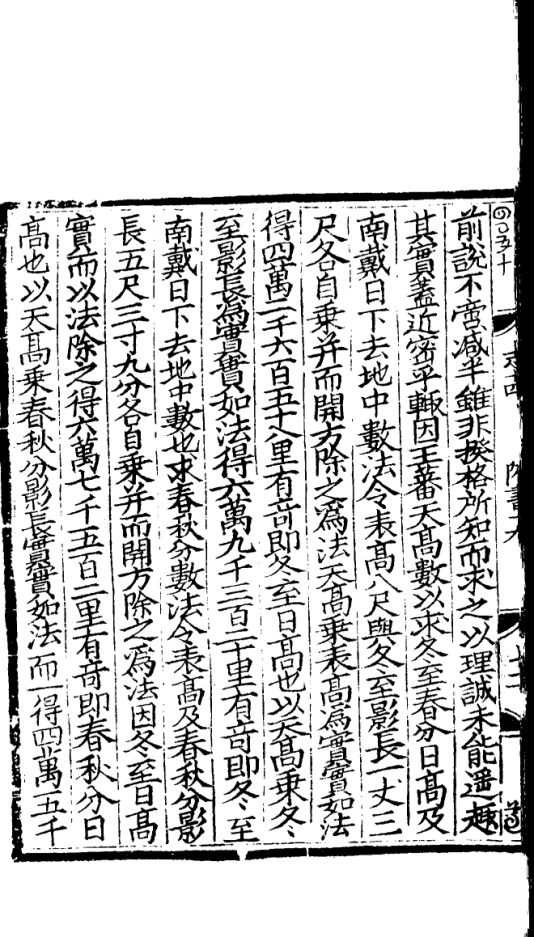 志四
前說不啻減半雖非揆格所知而求之以理誠未能遥趣
其實蓋近密乎輙因王蕃天髙數以求冬至春分日髙及
南戴日下去地中數法令表髙八尺與冬至影長一丈三
尺各自乗并而開方除之爲法天髙乗表髙爲實實如法
得四萬二千六百五十八里有竒即冬至日髙也以天髙乗冬
至影長爲實實如法得六萬九千三百二十里有竒即冬至
南戴日下去地中數也求春秋分數法令表髙及春秋分影
長五尺三寸九分各自乗并而開方除之爲法因冬至日髙
實而以法除之得六萬七千五百二里有竒即春秋分日
髙也以天髙乗春秋分影長實實如法而一得四萬五千